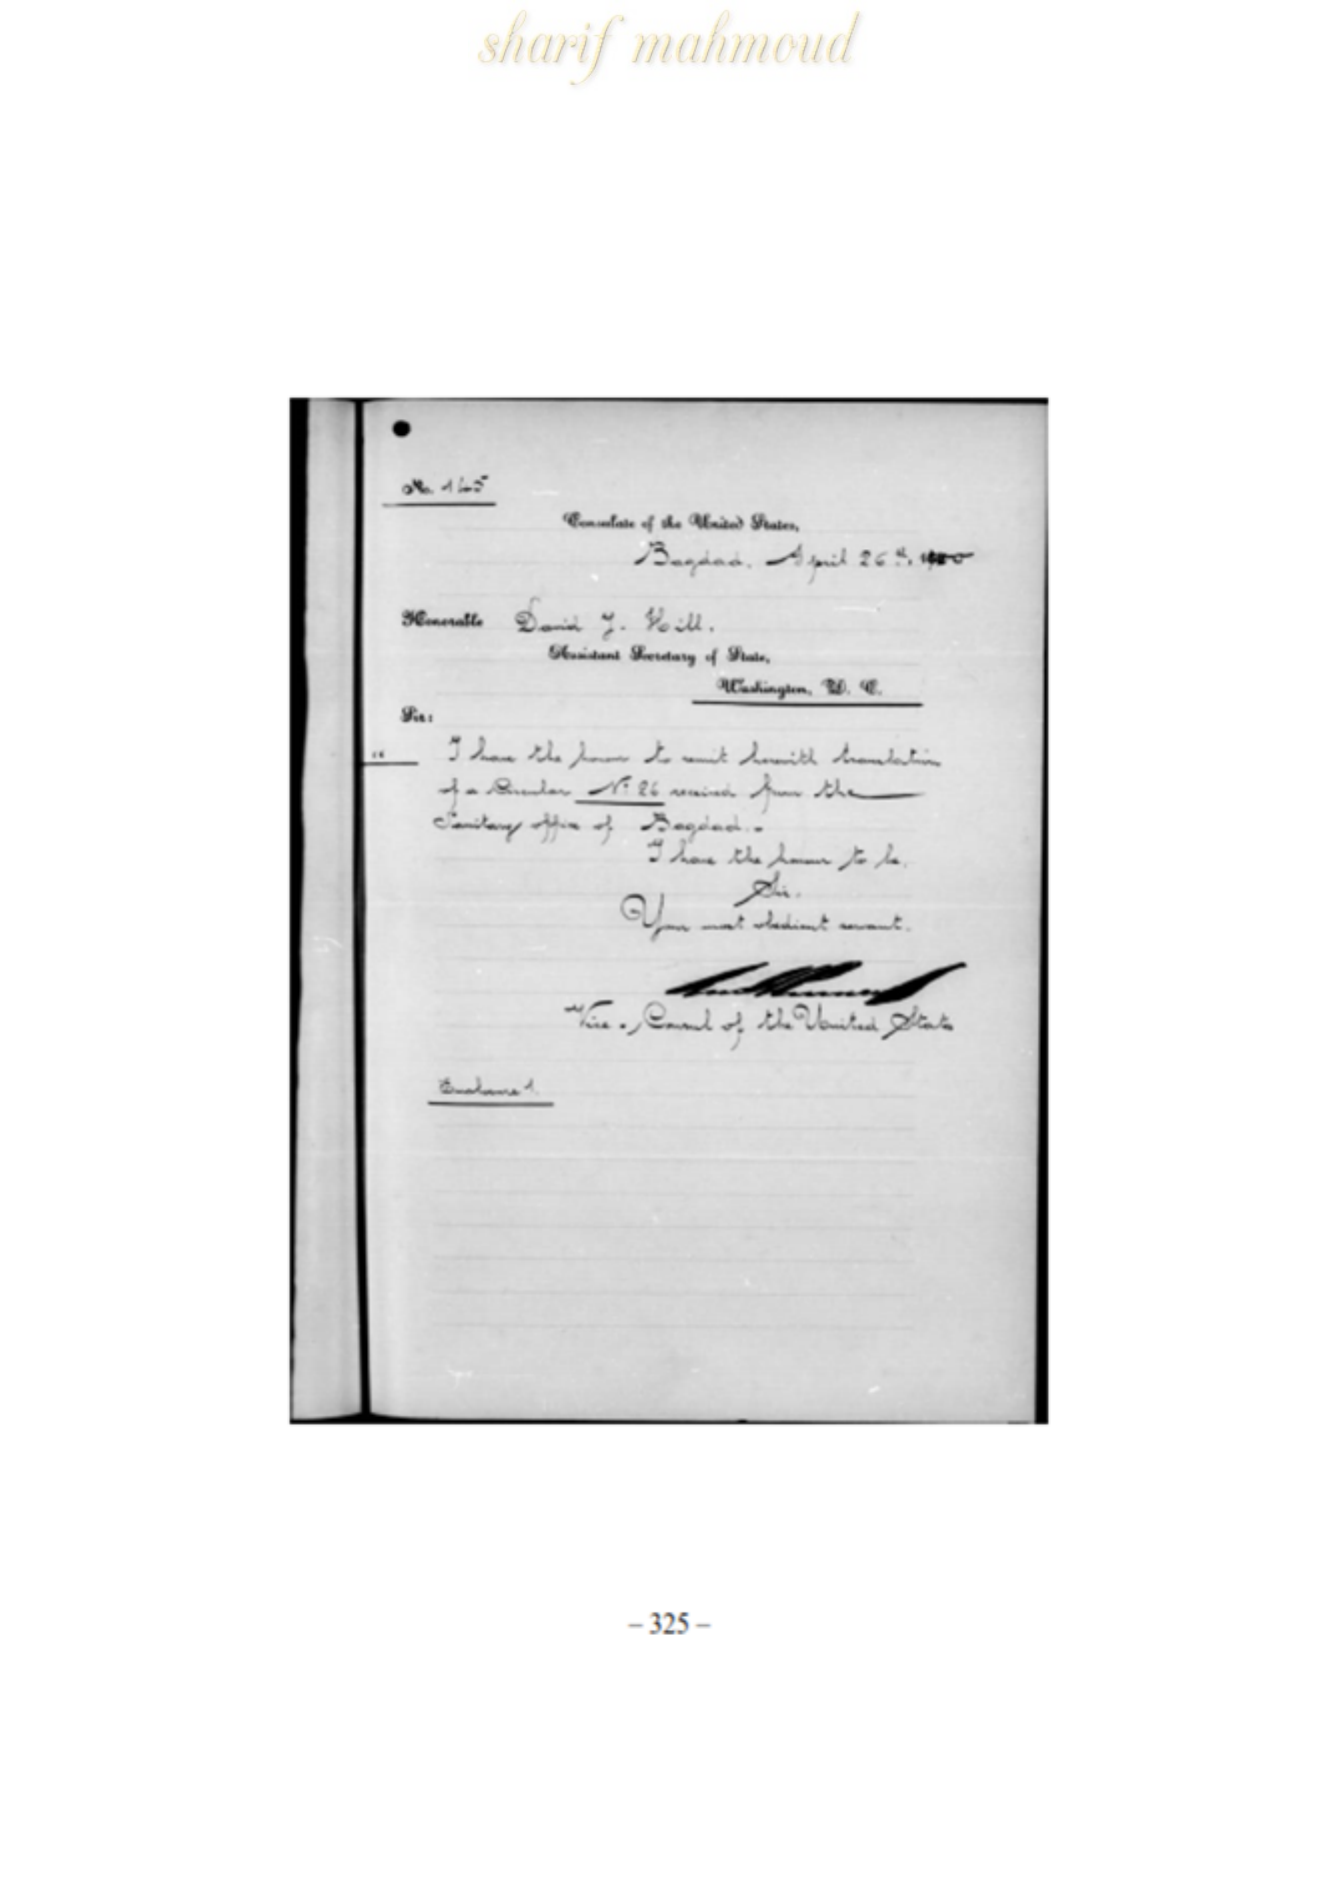 sharif mahmoud
No. 145
Consulate of the United States,
Bagdad. April 26th. 1900
Honorable David J. Hill.
Assistant Secretary of State,
Washington, D. C.
Sir:
"
I have the honour to remit herewith translation
of a Circular No. 26 received from the
Sanitary office of Bagdad.-
I have the honour to be,
Sir.
Your most obedient servant.
Vice-Consul of the United States
Enclosure 1.
– 325 –